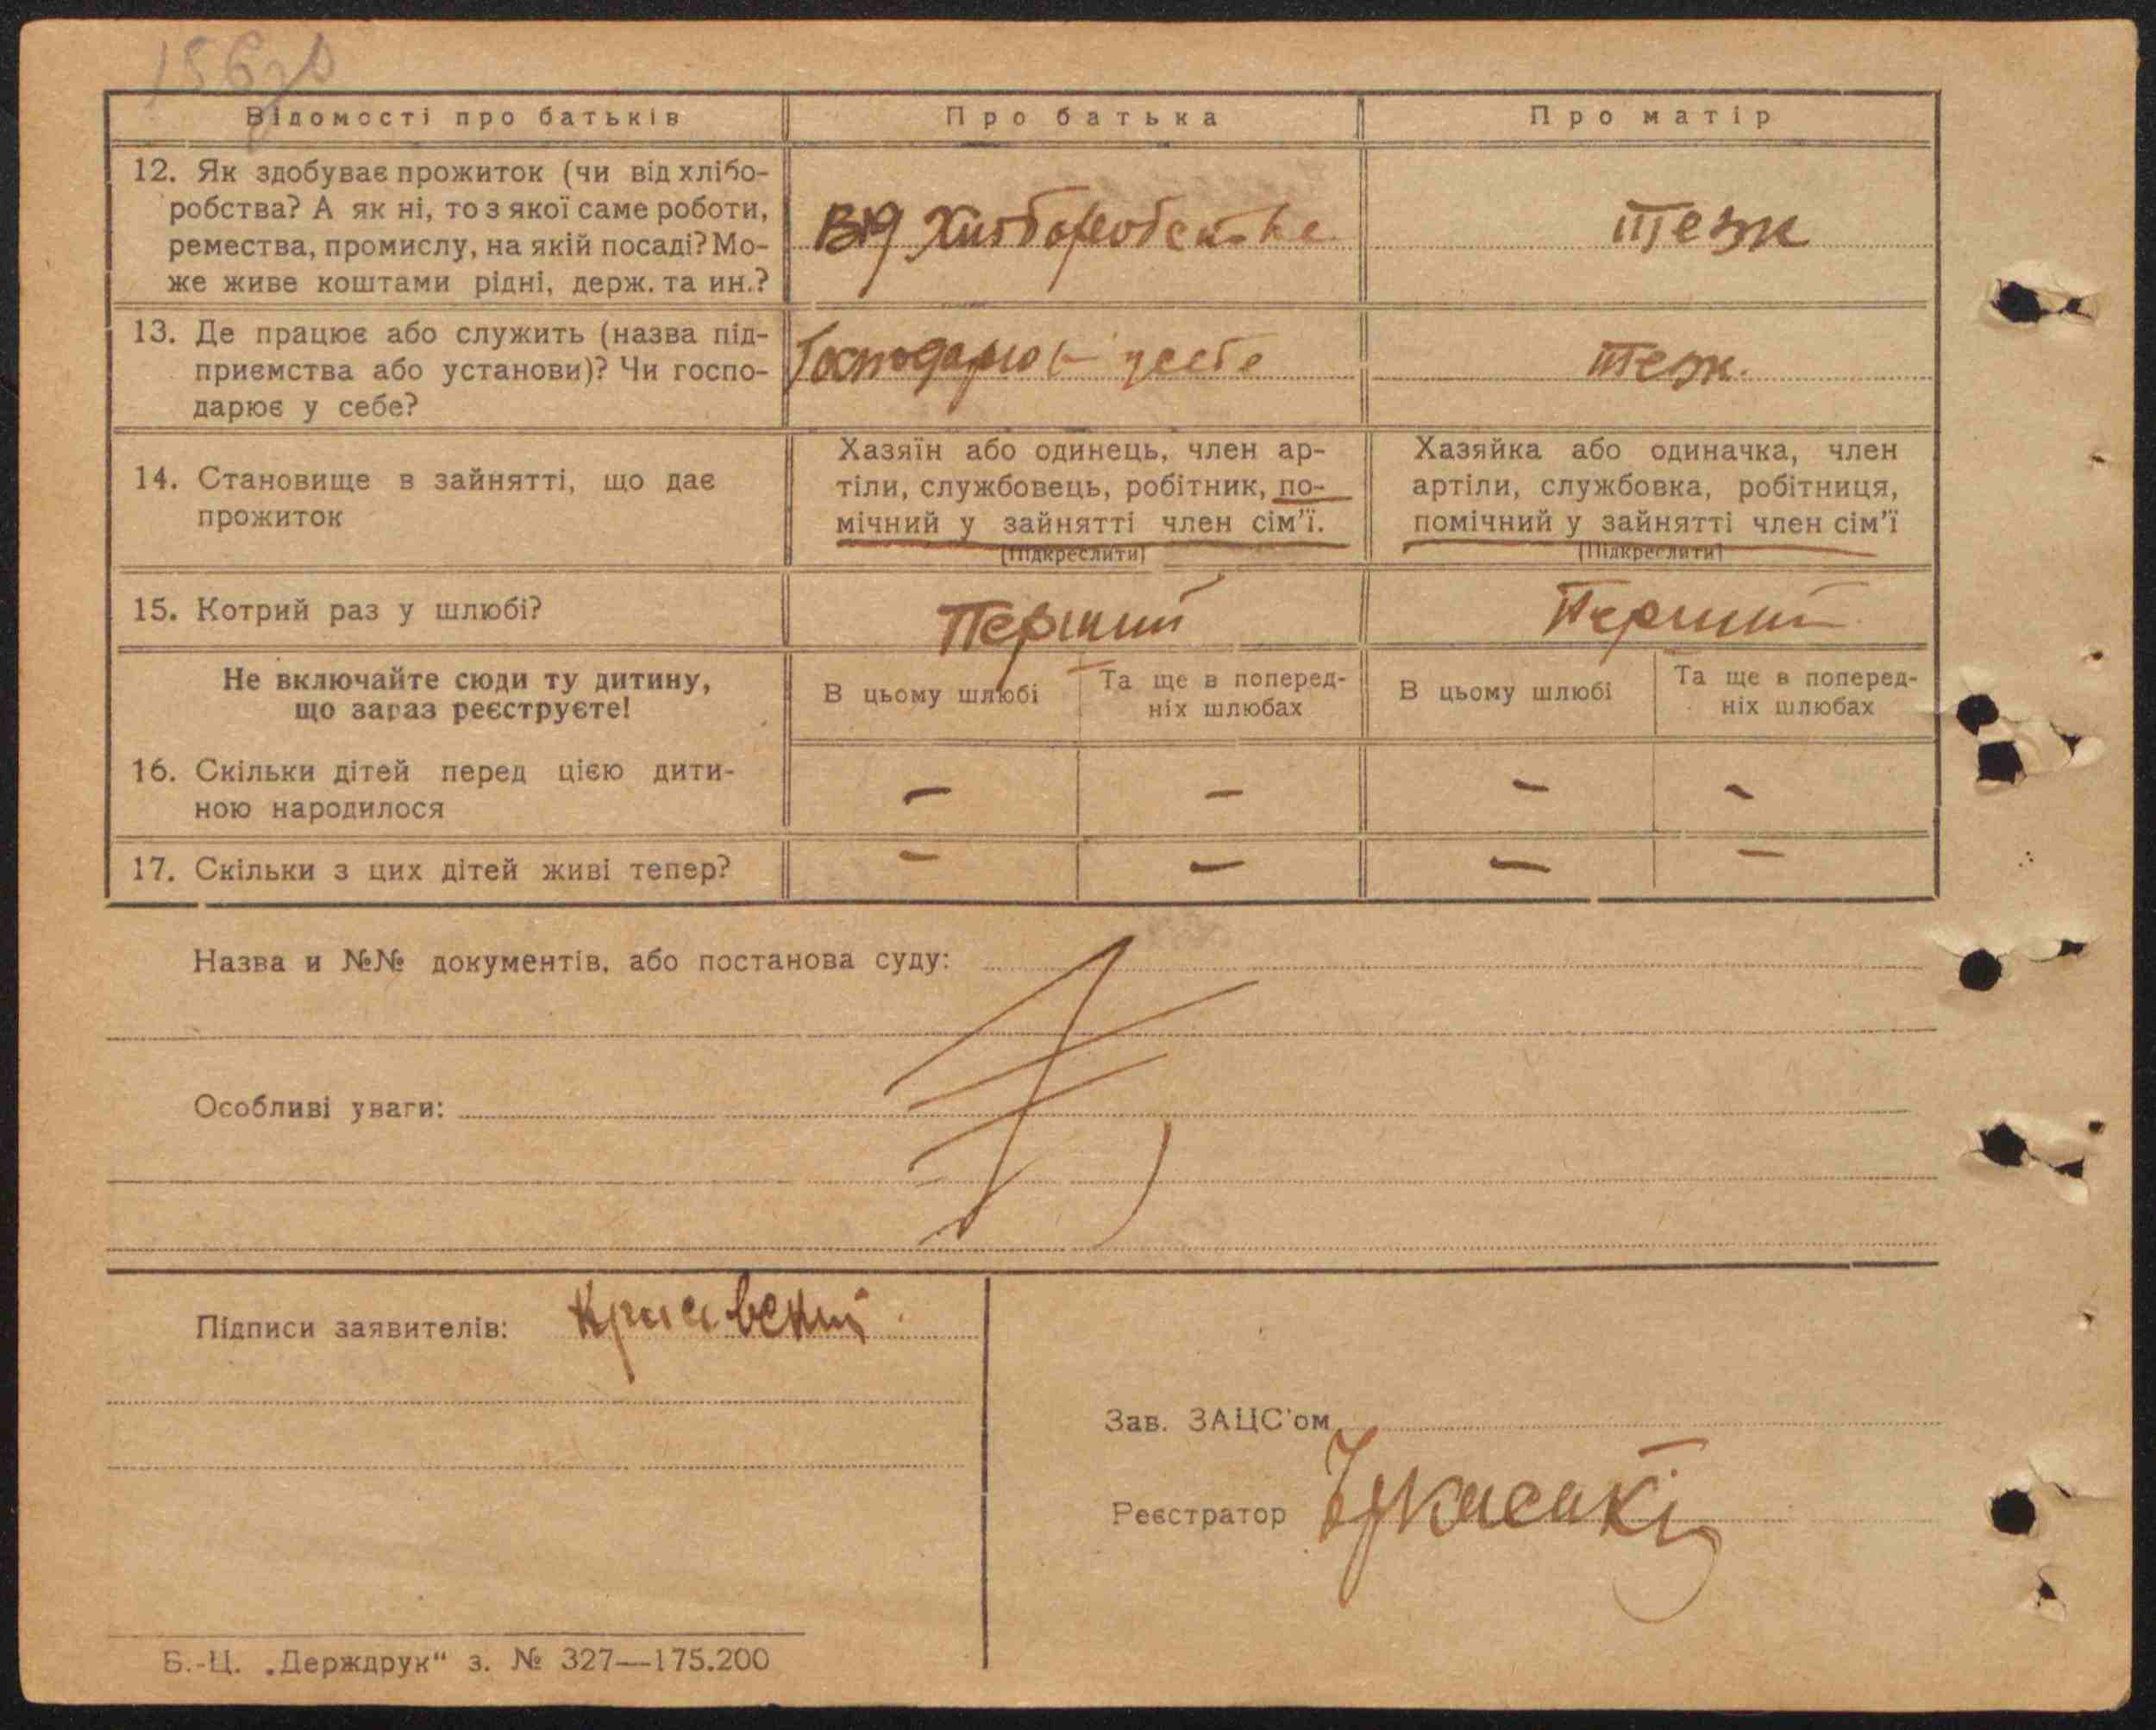 Відомості про батьків
Про батька
Про матір
12. Як здобуває прожиток (чи від хлібо-
робства? А як ні, то з якої саме роботи,
ремества, промислу, на якій посаді? Мо-
же живе коштами рідні, держ. та ин.?
Від Хліборобства
теж
13. Де працює або служить (назва під-
приємства або установи)? Чи госпо-
дарює у себе?
Господарює у себе
теж.
14. Становище в зайнятті, що дає
прожиток
Хазяїн або одинець, член ар-
тіли, службовець, робітник, по-
мічний у зайнятті член сім'ї.
(Підкреслити)
Хазяйка або одиначка, член
артіли, службовка, робітниця,
помічний у зайнятті член сім'ї
(Підкреслити)
15. Котрий раз у шлюбі?
Перший
Перший
Не включайте сюди ту дитину,
що зараз реєструєте!
В цьому шлюбі
Та ще в поперед-
ніх шлюбах
В цьому шлюбі
Та ще в поперед-
ніх шлюбах
16. Скільки дітей перед цією дити-
ною народилося
– – – –
17. Скільки з цих дітей живі тепер?
– – – –
Назва и №№ документів, або постанова суду:
Особливі уваги:
Підписи заявителів:
Зав. ЗАЦС'ом
Реєстратор
Б.-Ц. „Держдрук" з. № 327—175.200